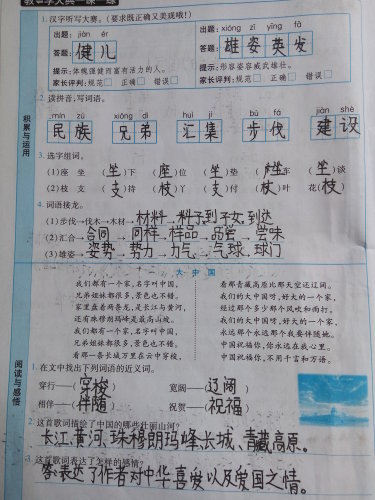 教学大典一课一练
1. 汉字听写大赛。(要求既正确又美观哦!)
出题: jiàn ér
出题: xióng zī yīng fā
答题: 健儿
答题: 雄姿英发
提示:体魄强健而富有活力的人。
提示:形容姿容威武雄壮。
家长评判:规范□ 正确□ 错误□
家长评判:规范□ 正确□ 错误□
积累与运用
2. 读拼音,写词语。
mín zú xiōng dì huì jí bù fá jiàn shè
民族 兄弟 汇集 步伐 建设
3. 选字组词。
(1)座 坐 (坐)下 (座)位 (坐)垫 (坐)车 (坐)谈
(2)枝 支 (支)持 (枝)丫 (支)付 (枝)叶 花(枝)
4. 词语接龙。
(1)步伐→伐木→木材→材料、料子到子女、到达
(2)汇合→合同→同样、样品→品尝→尝味
(3)雄姿→姿势、势力→力气、气球、球门
十一 大中国
我们都有一个家,名字叫中国,
兄弟姐妹都很多,景色也不错。
家里盘着两条龙,是长江与黄河,
还有珠穆朗玛峰是最高山坡。
我们都有一个家,名字叫中国,
兄弟姐妹都很多,景色也不错。
看那一条长城万里在云中穿梭,
看那青藏高原比那天空还辽阔。
我们的大中国呀,好大的一个家,
经过那个多少那个风吹和雨打。
我们的大中国呀,好大的一个家,
永远那个永远那个我要伴随她。
中国祝福你,你永远在我心里。
中国祝福你,不用千言和万语。
阅读与感悟
1. 在文中找出下列词语的近义词。
穿行——(穿梭) 宽阔——(辽阔)
相伴——(伴随) 祝贺——(祝福)
2. 这首歌词描绘了中国的哪些壮丽山河?
长江、黄河、珠穆朗玛峰、长城、青藏高原。
3. 这首歌词表达了怎样的感情?
答:表达了作者对中华喜爱以及爱国之情。